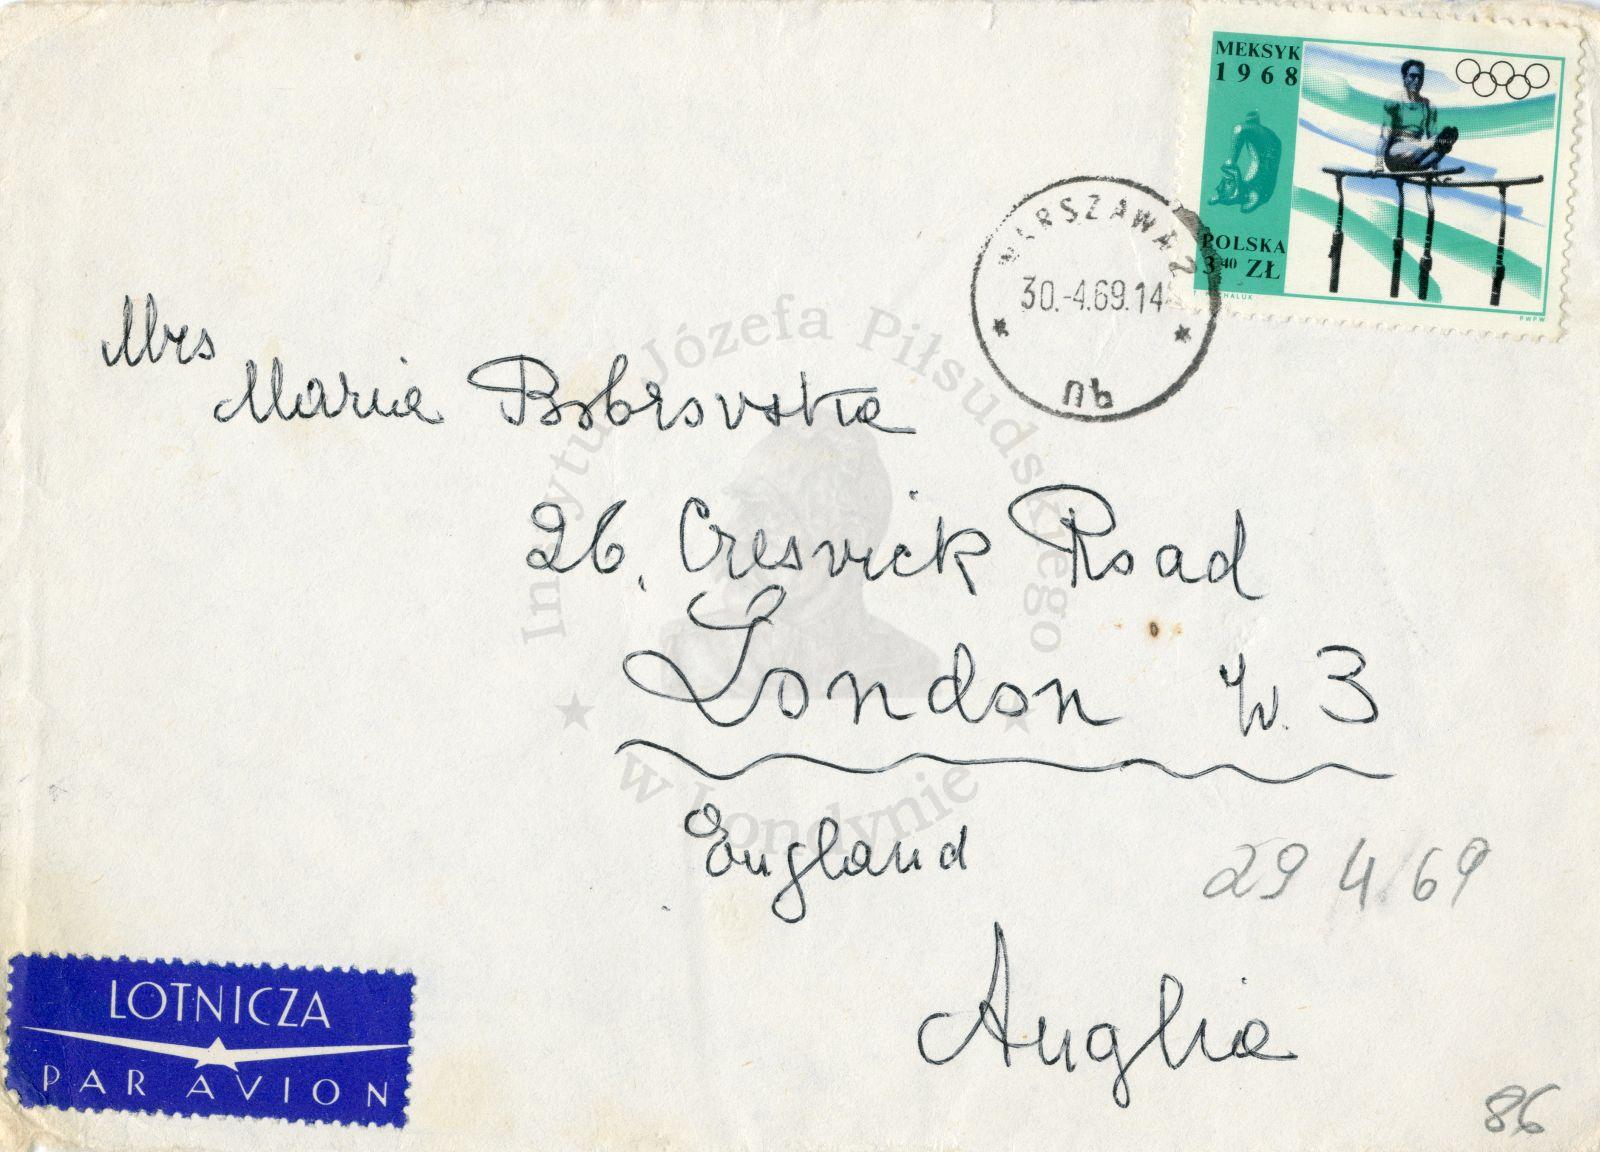 MEKSYK
1968
POLSKA
3 40 ZŁ
PWPW
WARSZAWA 2
30.-4.69.14
nb
Mrs
Maria Bobrowska
26, Creswick Road
London W. 3
England
29 4/69
Anglia
LOTNICZA
PAR AVION
86
Instytut Józefa Piłsudskiego
w Londynie